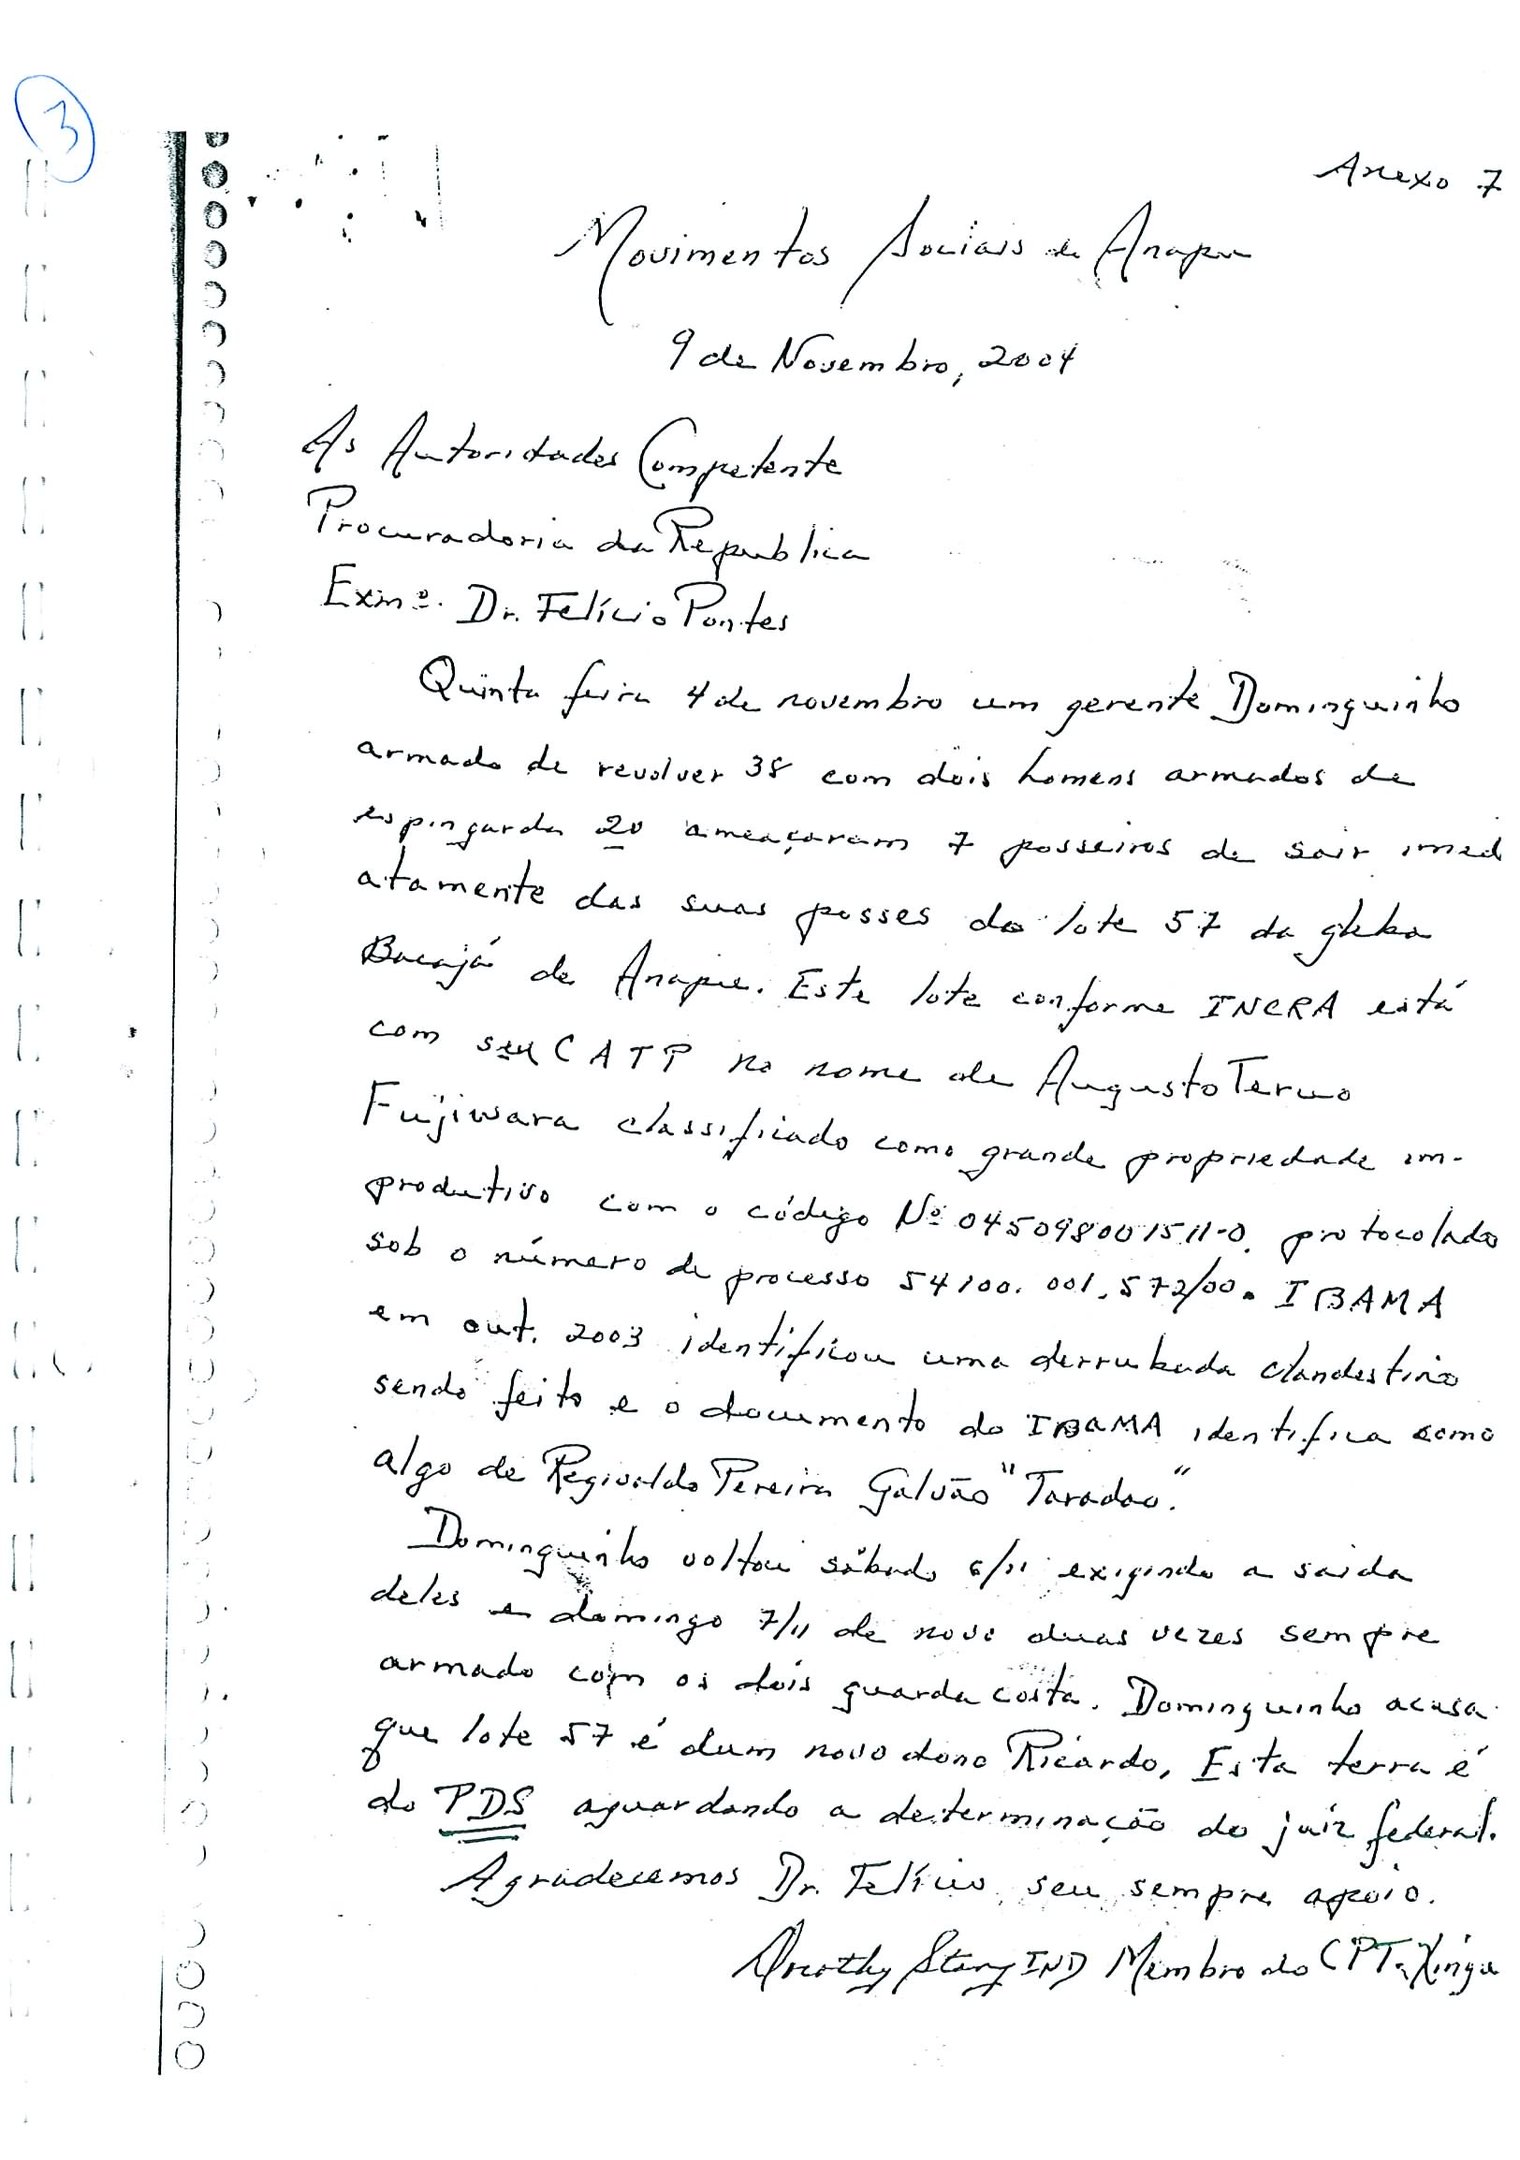 3
Anexo 7
Movimentos Sociais de Anapu
9 de Novembro, 2004
As Autoridades Competente
Procuradoria da Republica
Exmº. Dr. Felício Pontes
Quinta feira 4 de novembro um gerente Dominguinho
armado de revolver 38 com dois homens armados de
espingarda 20 ameaçaram 7 posseiros de sair imed
atamente das suas posses do lote 57 da gleba
Bacajá de Anapu. Este lote conforme INCRA está
com seu CATP no nome de Augusto Teruo
Fujiwara classificado como grande propriedade im-
produtivo com o código Nº 045098001511-0 protocolado
sob o número de processo 54100.001.572/00. IBAMA
em out. 2003 identificou uma derrubada clandestino
sendo feito e o documento do IBAMA identifica como
algo de Regivaldo Pereira Galvão "Taradao".
Dominguinho voltou sábado 6/11 exigindo a saida
deles e domingo 7/11 de novo duas vezes sempre
armado com os dois guarda costa. Dominguinho acusa
que lote 57 é dum novo dono Ricardo, Esta terra é
do PDS aguardando a determinação do juiz federal.
Agradecemos Dr. Felício seu sempre apoio.
Dorothy Stang IND Membro do CPT Xingu